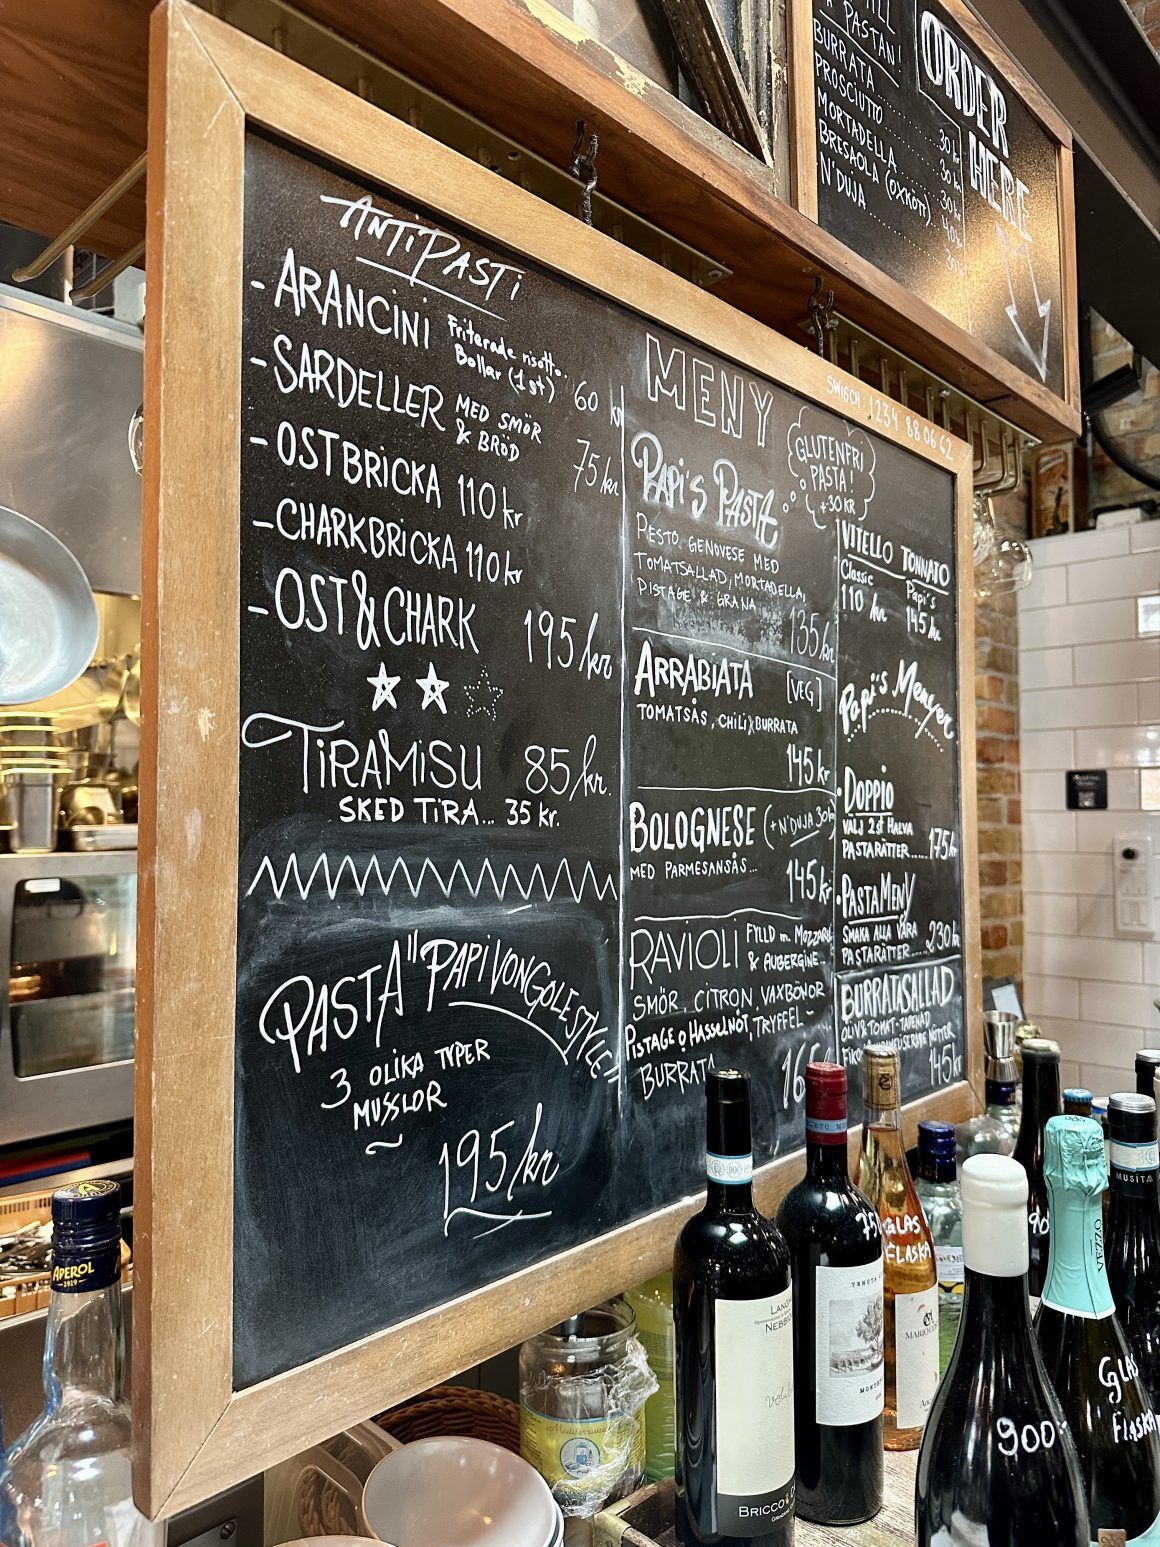 ANTIPASTI
- ARANCINI Friterade risotto
Bollar (1 st) 60 kr
- SARDELLER MED SMÖR
& BRÖD 75 kr
- OSTBRICKA 110 kr
- CHARKBRICKA 110 kr
- OST & CHARK 195 kr
TIRAMISU 85 kr.
SKED TIRA... 35 kr.
PASTA "PAPI VONGOLE STYLE"
3 OLIKA TYPER
MUSSLOR
195 kr
MENY
GLUTENFRI
PASTA!
+30 KR
PAPI'S PASTA
PESTO GENOVESE MED
TOMATSALLAD, MORTADELLA,
PISTAGE & GRANA
135 kr
ARRABIATA [VEG]
TOMATSÅS, CHILI & BURRATA
145 kr
BOLOGNESE (+ N'DUJA 30 kr)
MED PARMESANSÅS...
145 kr
RAVIOLI FYLLD m. MOZZARE
& AUBERGINE..
SMÖR, CITRON, VAXBÖNOR
PISTAGE o HASSELNÖT, TRYFFEL-
BURRATA
SWISCH: 1234 88 06 62
VITELLO TONNATO
Classic Papi's
110 kr 145 kr
Papi's Menyer
• DOPPIO
VÄLJ 2 st HALVA
PASTARÄTTER...... 175 kr
• PASTAMENY
SMAKA ALLA VÅRA
PASTARÄTTER..... 230 kr
BURRATASALLAD
OLIV & TOMAT-TAPENAD
145 kr
TILL
PASTAN!
BURRATA
PROSCIUTTO 30 kr
MORTADELLA 30 kr
BRESAOLA (OXKÖTT) 30 kr
N'DUJA 40 kr
ORDER
HERE
APEROL
1919
DOC
NEBBIO
BRICCO
TENUTA
75
GLAS
FLASKA
MARIO
90
900
MUSITA
GLAS
FLASKA
Mediterranea